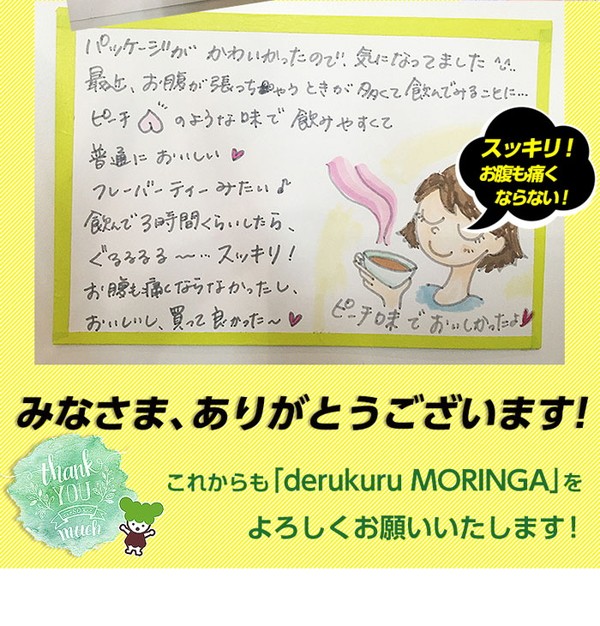 パッケージが かわいかったので、気になってました
最近、お腹が張っちゃう ときが 多くて 飲んでみることに…
ピーチ のような味で 飲みやすくて
普通に おいしい
フレーバーティー みたい♪
飲んで 3時間くらいしたら、
ぐるるるる〜… スッキリ!
お腹も痛くならなかったし、
おいしいし、買って 良かった〜
スッキリ!
お腹も痛く
ならない!
ピーチ味で おいしかったよ
みなさま、ありがとうございます!
thank
YOU
much
これからも「derukuru MORINGA」を
よろしくお願いいたします!